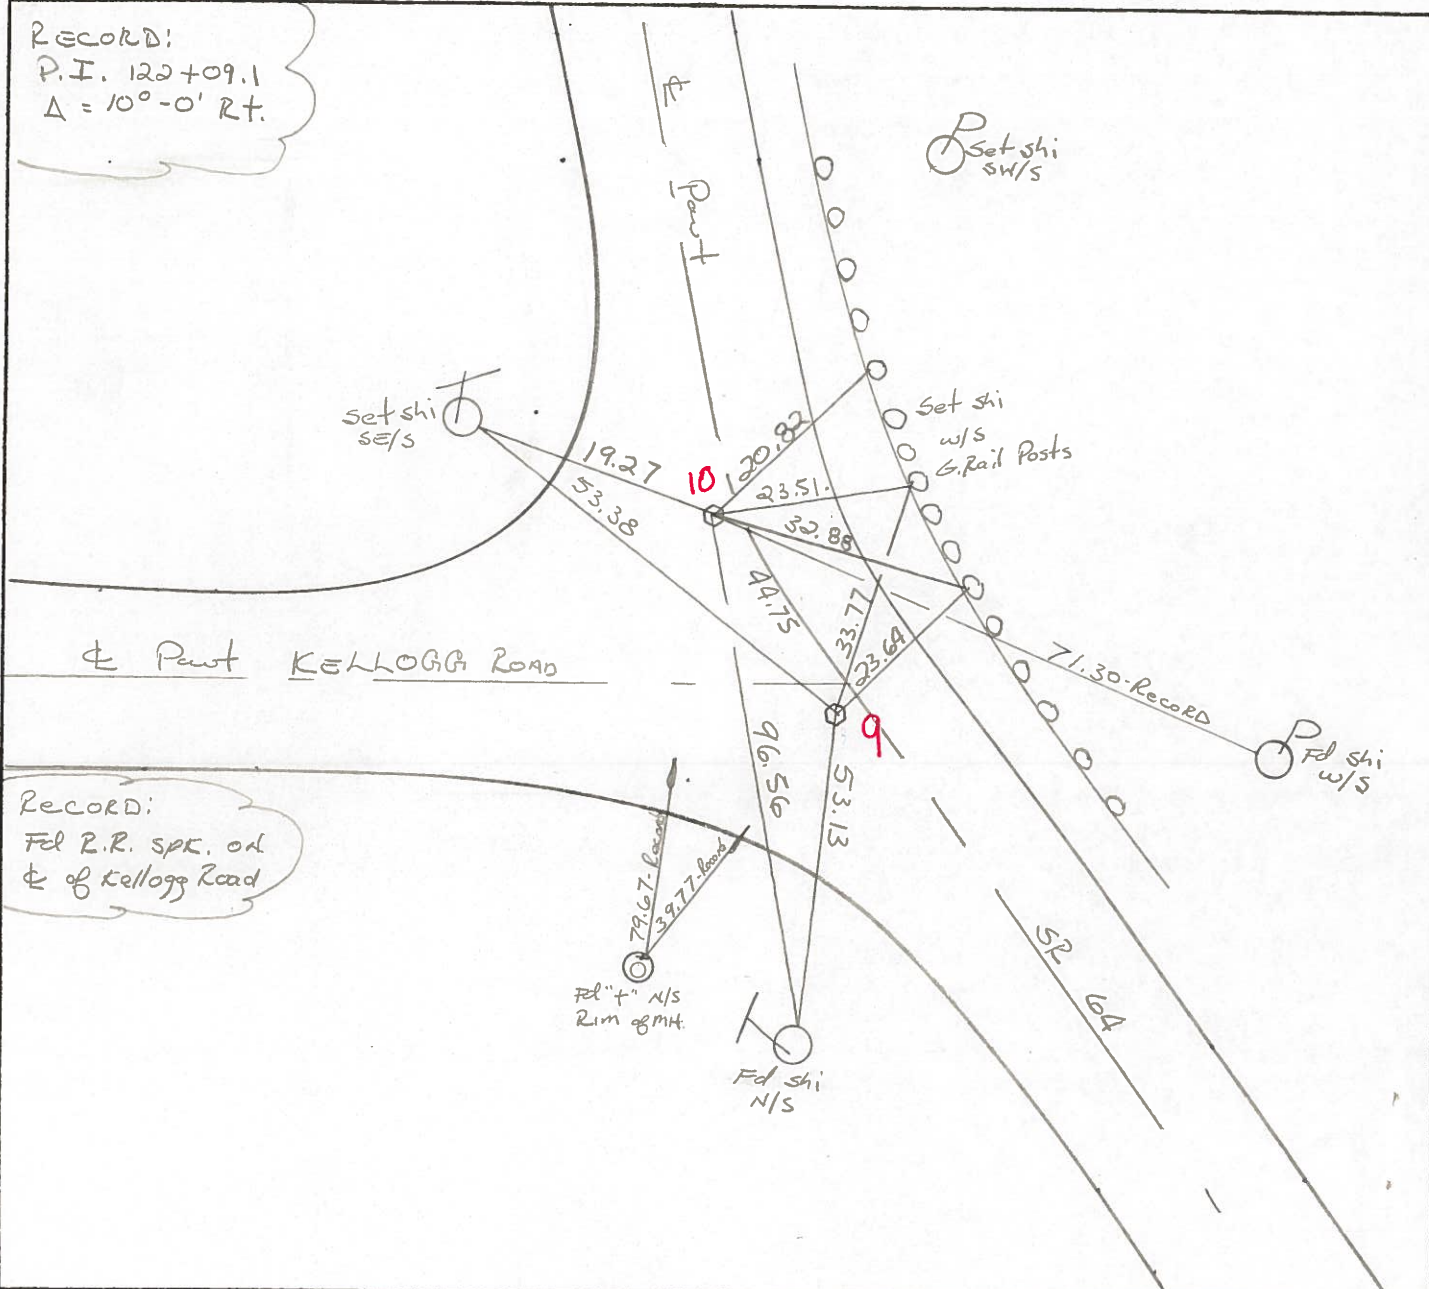 RECORD:
P.I. 122+09.1
Δ = 10°-0' Rt.
℄
Pavt
Set shi
SW/S
Set shi
SE/S
Set shi
W/S
G.Rail Posts
19.27
53.38
10
20.82
23.51
32.88
44.75
33.77
23.64
71.30-Record
Fd shi
W/S
℄ Pavt KELLOGG ROAD
9
96.56
53.13
RECORD:
Fd R.R. SPK. ON
℄ of Kellogg Road
79.67-Record
39.77-Record
Fd "+" N/S
Rim of MH.
Fd shi
N/S
SR 64